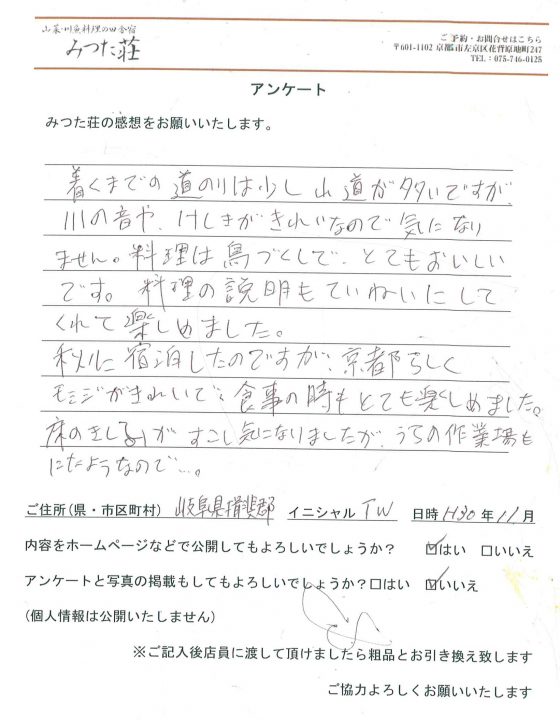 山菜・川魚料理の田舎宿
みつた荘
ご予約・お問合せはこちら
〒601-1102 京都市左京区花背原地町247
TEL：075-746-0125
アンケート
みつた荘の感想をお願いいたします。
着くまでの道のりは少し山道が多いですが、
川の音や、けしきがきれいなので気になり
ません。料理は鳥づくしで、とてもおいしい
です。料理の説明もていねいにして
くれて楽しめました。
秋に宿泊したのですが、京都らしく
モミジがきれいで、食事の時もとても楽しめました。
床のきしみがすこし気になりましたが、うちの作業場も
にたようなので…。
ご住所(県・市区町村) 岐阜県揖斐郡 イニシャル TW 日時 H30 年 11 月
内容をホームページなどで公開してもよろしいでしょうか？ ☑はい □いいえ
アンケートと写真の掲載もしてもよろしいでしょうか？□はい ☑いいえ
(個人情報は公開いたしません)
※ご記入後店員に渡して頂けましたら粗品とお引き換え致します
ご協力よろしくお願いいたします